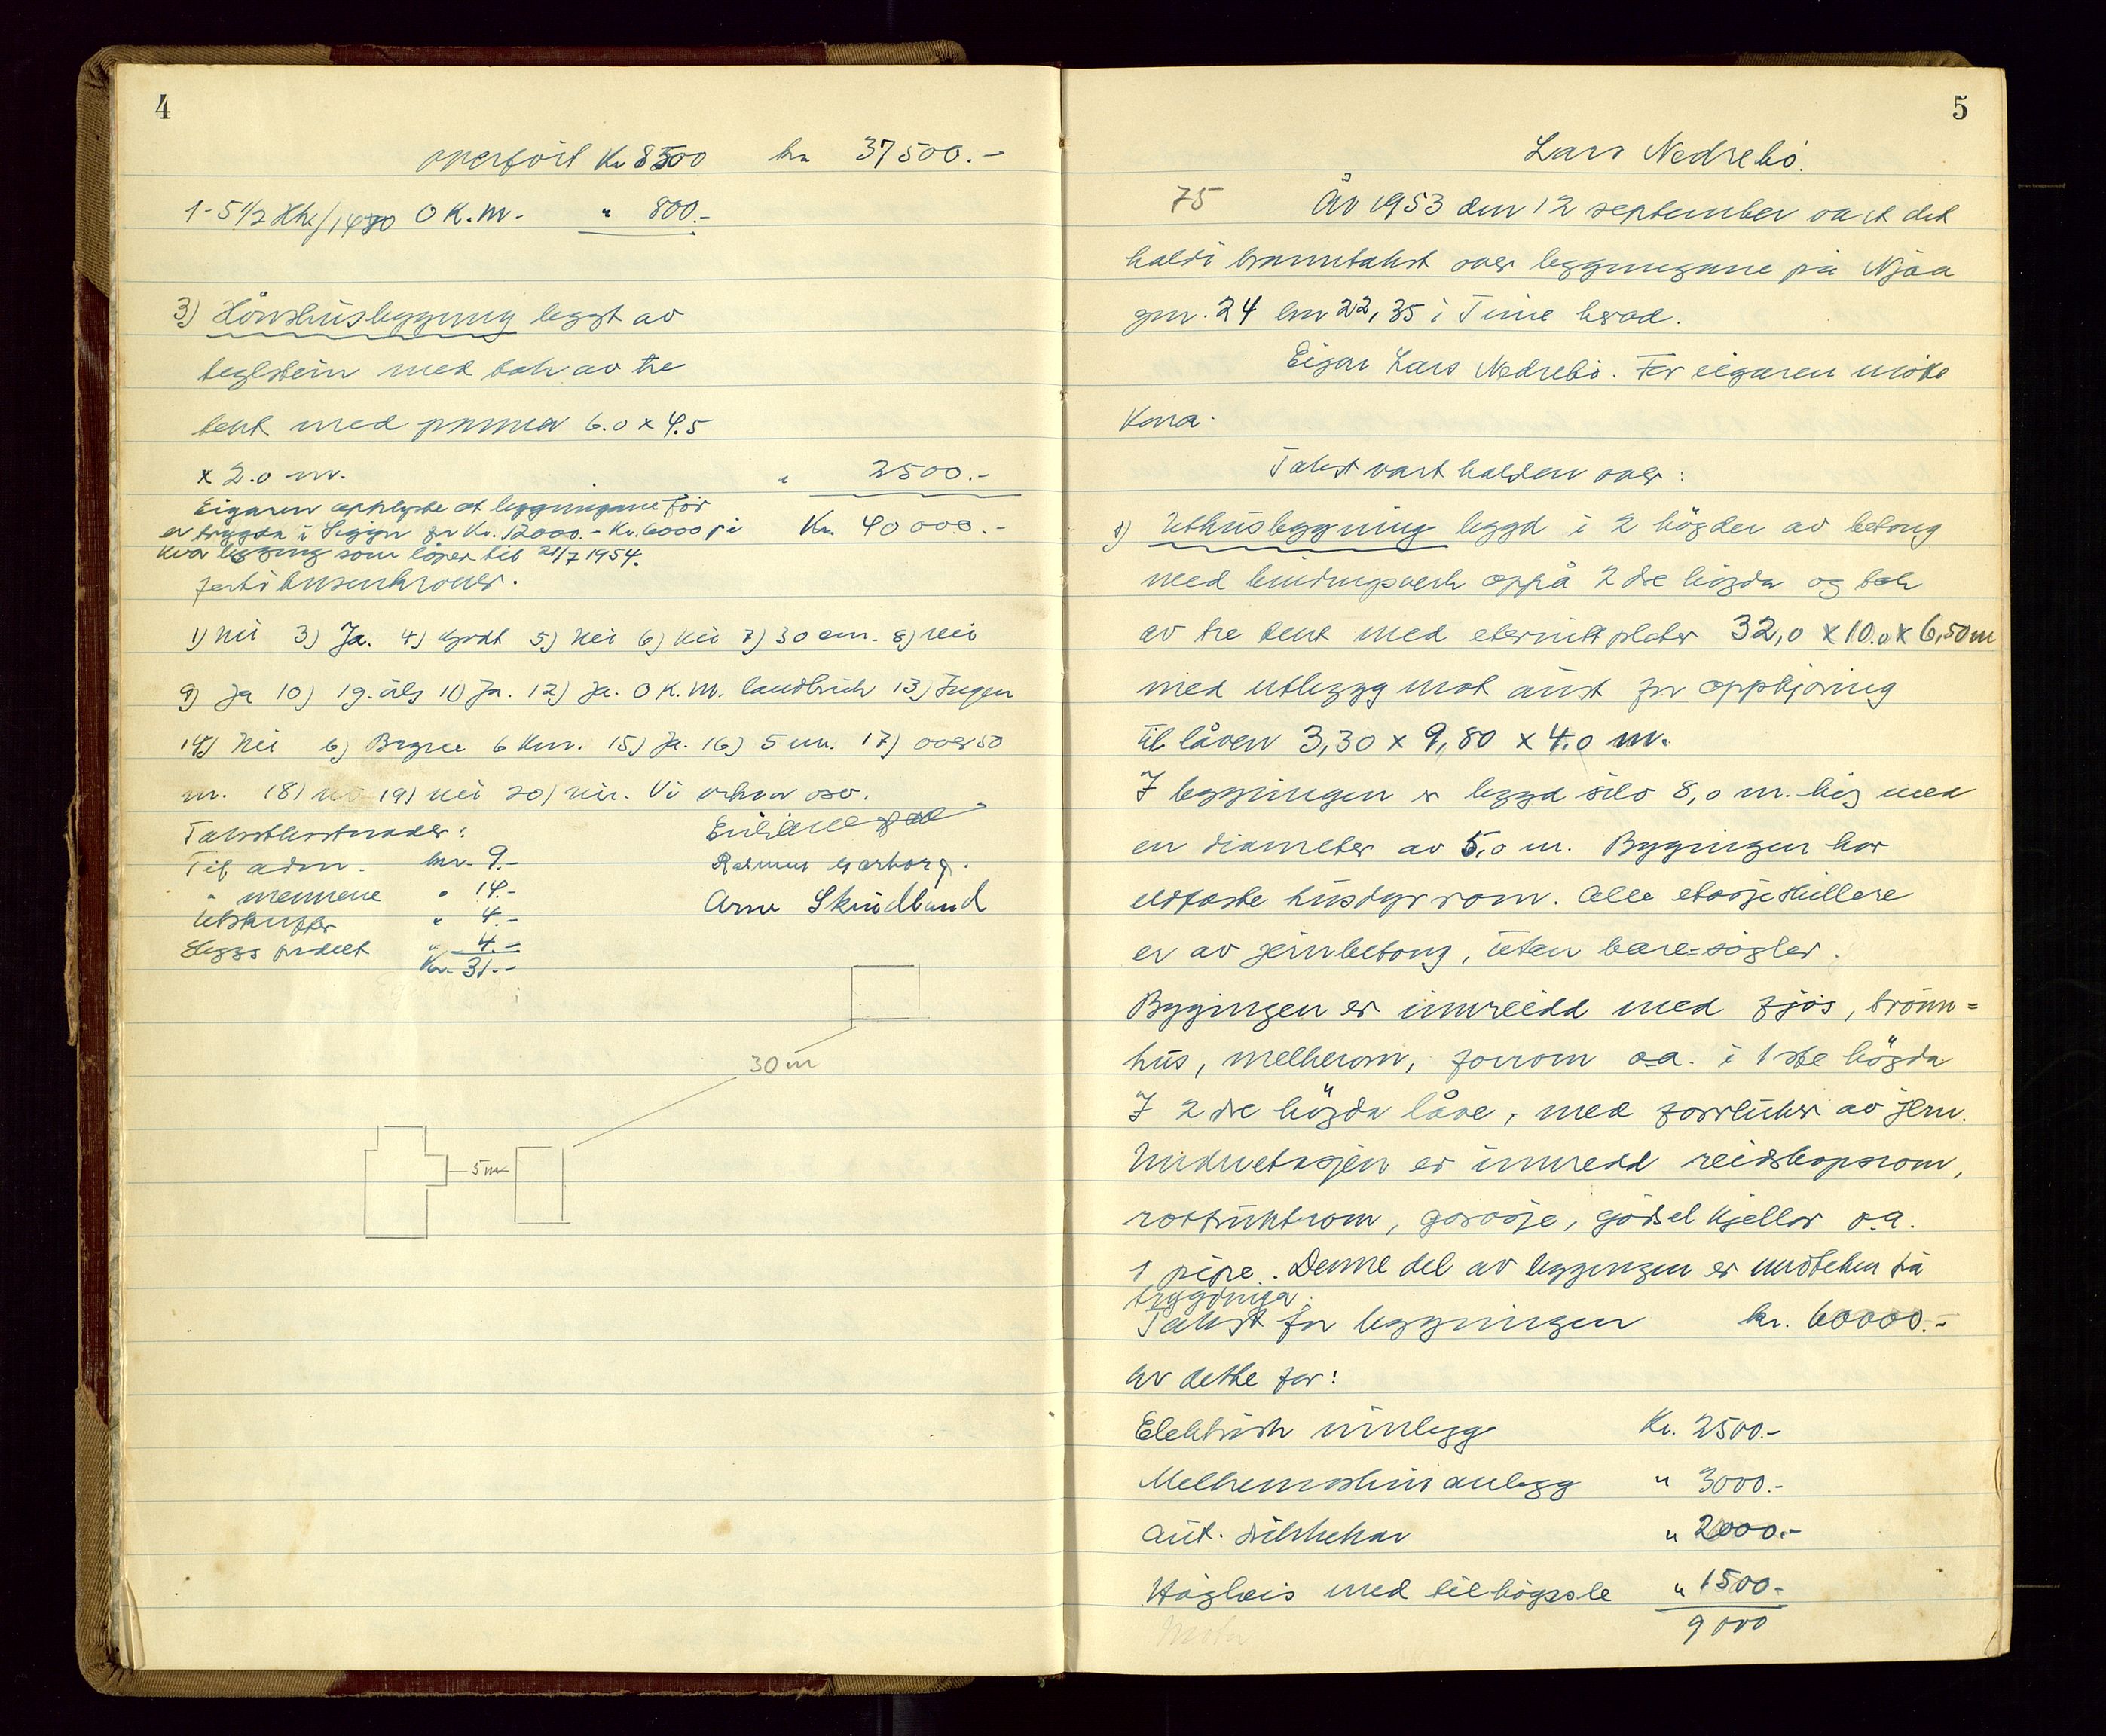 4
overført Kr 8500 kr 37500.-
1-5 1/2 Hk/1430 O K.M. " 800.-
3) Hönshusbygging bygt av
teglstein med tak av tre
tekt med panner 6.0 x 4.5
x 2.0 m. " 2500.-
Eigaren opplyste at byggningane för
er trygda i Sigyn for Kr. 12000.- Kr. 6000 på Kr. 40000.-
kvar bygging som löper til 21/7 1954.
førti tusenkroner.
1) Nei 3) Ja. 4) Godt 5) Nei 6) Nei 7) 30 cm. 8) Nei
9) Ja 10) 19. 11) Ja. 12) Ja. O K.M. landbruk 13) Ingen
14) Nei b) Bryne 6 km. 15) Ja. 16) 5 m. 17) over 50
m. 18) 19) Nei 20) Nei. Vi
Takstkostnader:
Til adm. kr. 9.- Rasmus Garborg.
" mennene " 14.- Arne Skindlund
Utskrifter " 4.-
" 4.-
Kr. 31.-
30 m
5 m
5
Lars Nedrebö.
75 År 1953 den 12 september vart det
haldi branntakst over byggningane på Njåa
gnr. 24 bnr 22, 35 i Time herad.
Eigar Lars Nedrebö. For eigaren mötte
Kona.
Takst vart halden over:
1) Uthusbyggning bygd i 2 högder av betong
med bindingsverk oppå 2dre högda og tak
av tre tekt med eternittplater 32,0 x 10.0 x 6,50 m
med utbygg mot aust for oppkjøring
til låven 3,30 x 9,80 x 4,0 m.
I byggningen er bygd silo 8,0 m. hög med
en diameter av 5,0 m. Bygingen har
eldfaste husdyrrom. Alle etasjeskillere
er av jernbetong, uten bare-søgler.
Bygingen er innreidd med fjös, brönn=
hus, melkerom, forrom o.a. i 1ste högda
I 2dre högda låve, med forrluker av jern.
Underetasjen er innredd reidskapsrom,
rotfruktrom, garasje, gjödselkjellar o.a.
1 pipe. Denne del av byggingen er undteken frå
trygdinga.
Takst for byggningen kr. 60000.-
Av dette for:
Elektrisk innlegg Kr. 2500.-
Melkemaskinanlegg " 3000.-
Aut. drikkekar " 2000.-
Höyheis med tilhögrsle " 1500.-
9000
Motor